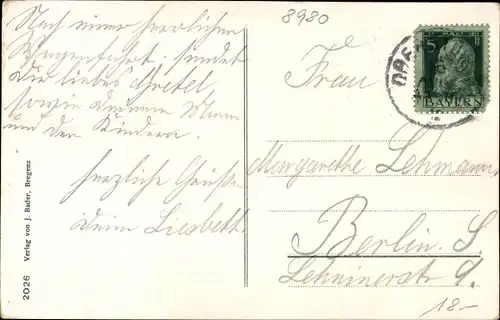 8980
Nach einer herrlichen
Wagenfahrt sendet
Dir liebes Gretel
sowie Deinem Mann
und den Kindern
herzliche Grüße
Deine Liesbeth.
Frau
Margarethe Lehmann
Berlin. S.
Lehninerstr 9.
18.-
5
BAYERN
2026 Verlag von J. Bader, Bregenz